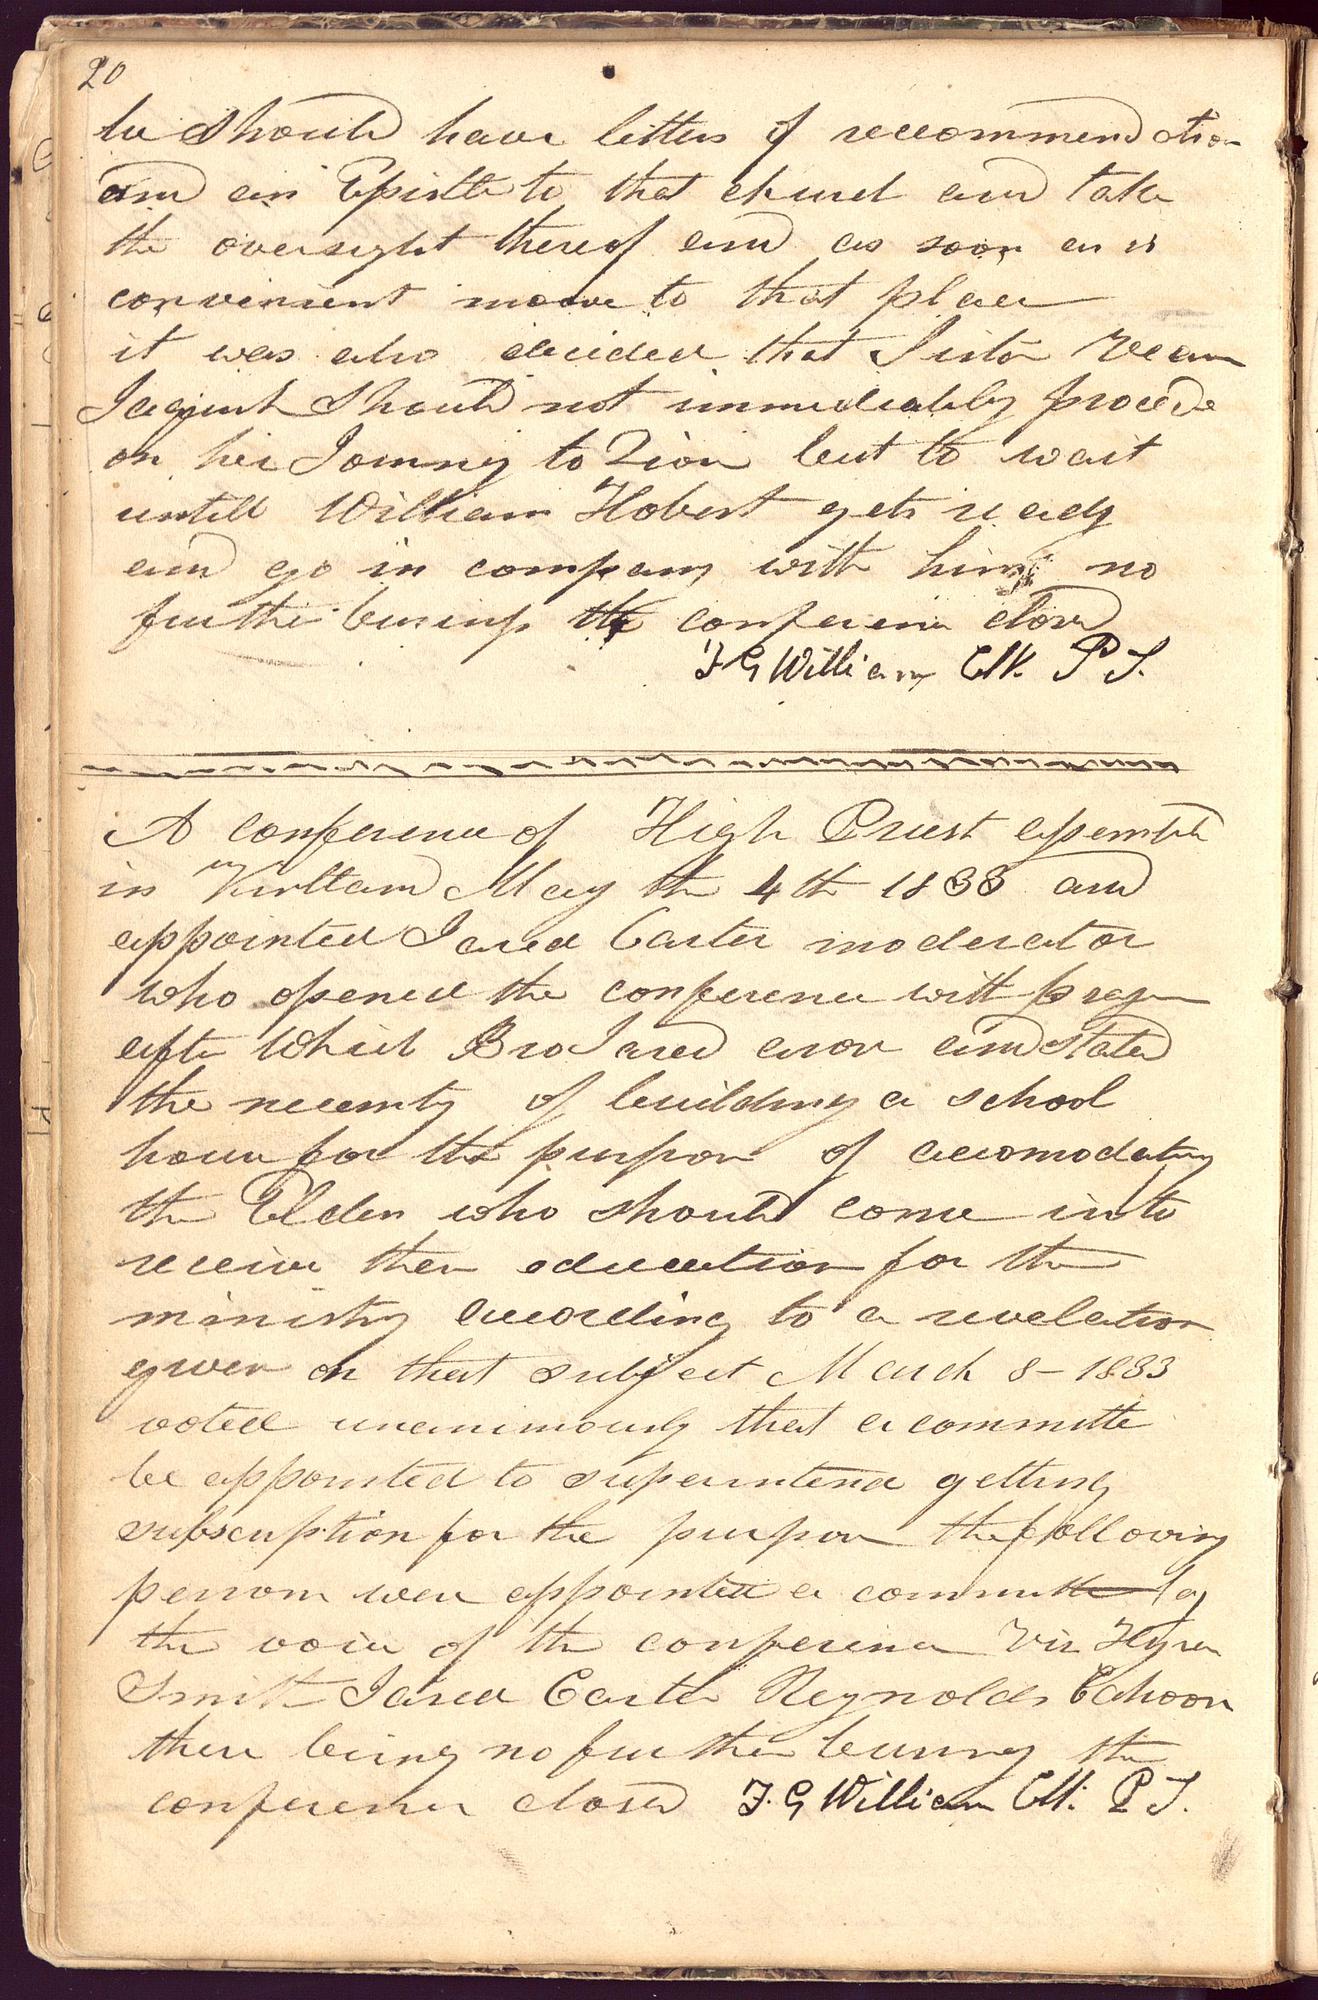 20
he should have letters of reccommendation
and an Epistle to that church and take
the oversight thereof and as soon as is
convenient moove to that place
it was also decided that Sister Vean
Jaquish should not immediately procede
on her Journy to Zion but to wait
untill William Hobert gets ready
and go in company with him no
further business the conference closed
F G Williams Clk. P T.
A conference of High Priest assembled
in Kirtland May the 4th 1833 and
appointed Jared Carter moderator
who opened the conference with prayer
after which Bro Jared arose and stated
the necessity of building a school
house for the purpose of accomodating
the Elders who should come in to
receive their education for the
ministry according to a revelation
given on that subject March 8 - 1833
voted unanimously that a committe
be appointed to superintend getting
subscription for the purpose the following
persons were appointed a committe by
the voice of the conference Viz Hyram
Smith Jared Carter Reynolds Cahoon
there being no further business the
conference closed F. G Williams Clk. P T.